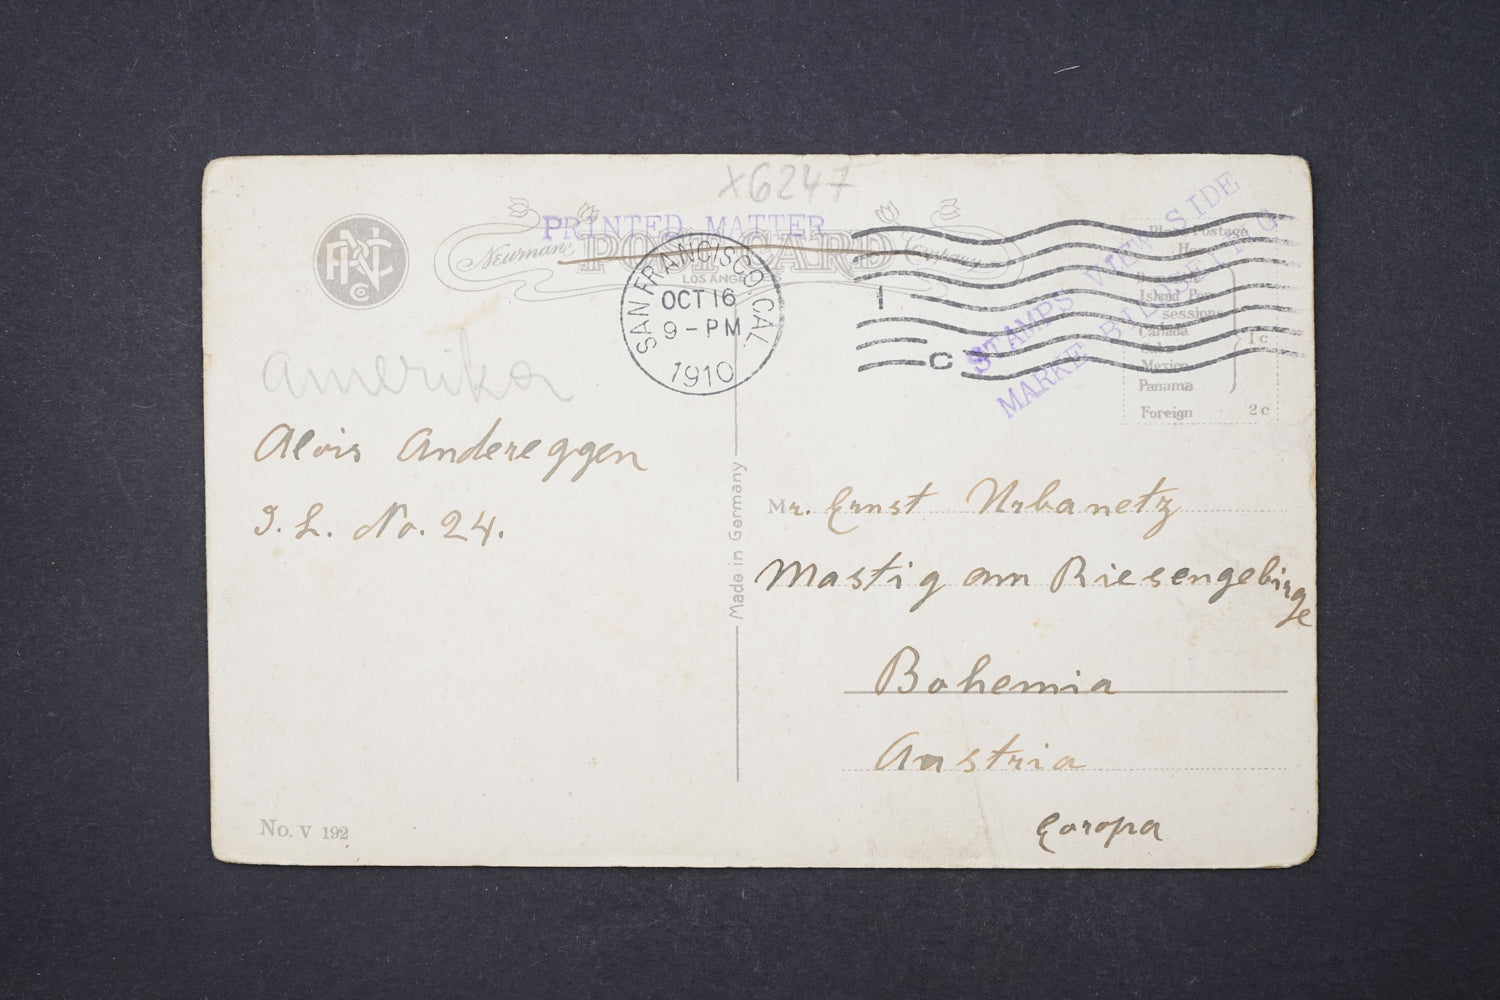 X6247
PRINTED MATTER
Newman POST CARD Company
LOS ANGE
SAN FRANCISCO, CAL.
OCT 16
9-PM
1910
1
C
STAMPS VIEW SIDE
MARKE BILDSEITIG
Postage
Island Pos-
sessions
Canada
Cuba
Mexico
Panama
1c
Foreign 2c
Amerika
Alois Андereggen
J. L. No. 24.
Made in Germany
Mr. Ernst Urbanetz
Mastig am Riesengebirge
Bohemia
Austria
Europa
No. V 192